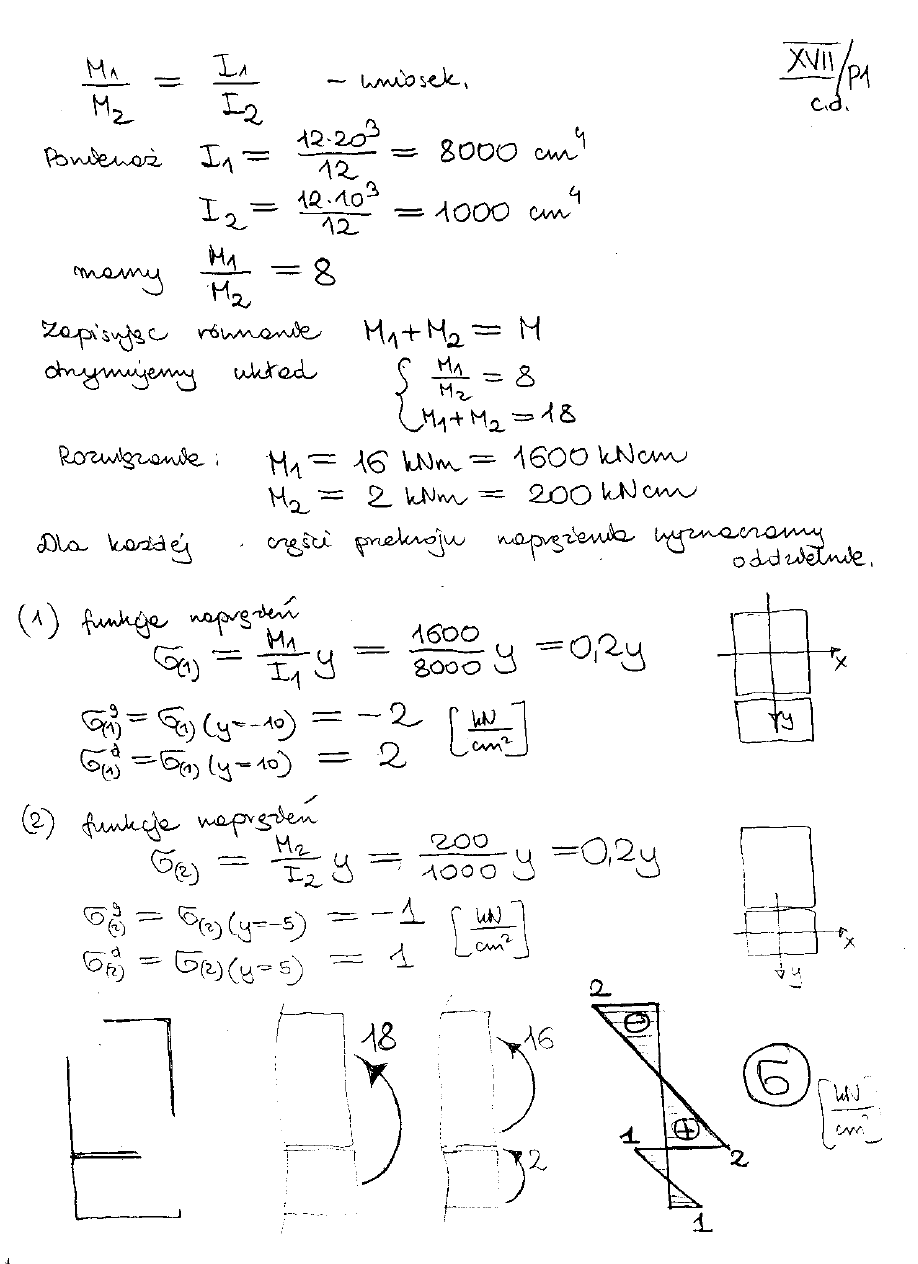 XVII/P1
c.d.
M₁/M₂ = I₁/I₂ – wniosek.
Ponieważ I₁ = 12·20³/12 = 8000 cm⁴
I₂ = 12·10³/12 = 1000 cm⁴
mamy M₁/M₂ = 8
Zapisując równanie M₁+M₂ = M
otrzymujemy układ { M₁/M₂ = 8
M₁+M₂ = 18
Rozwiązanie: M₁ = 16 kNm = 1600 kNcm
M₂ = 2 kNm = 200 kNcm
Dla każdej części przekroju naprężenia wyznaczamy
oddzielnie.
(1) funkcja naprężeń
σ(1) = M₁/I₁ y = 1600/8000 y = 0,2y
x
y
σ(1)ᵍ = σ(1) (y=-10) = -2 [kN/cm²]
σ(1)ᵈ = σ(1) (y=10) = 2
(2) funkcja naprężeń
σ(2) = M₂/I₂ y = 200/1000 y = 0,2y
σ(2)ᵍ = σ(2) (y=-5) = -1 [kN/cm²]
σ(2)ᵈ = σ(2) (y=5) = 1
x
y
18
16
2
2
⊖
⊕
1
2
1
σ
[kN/cm²]